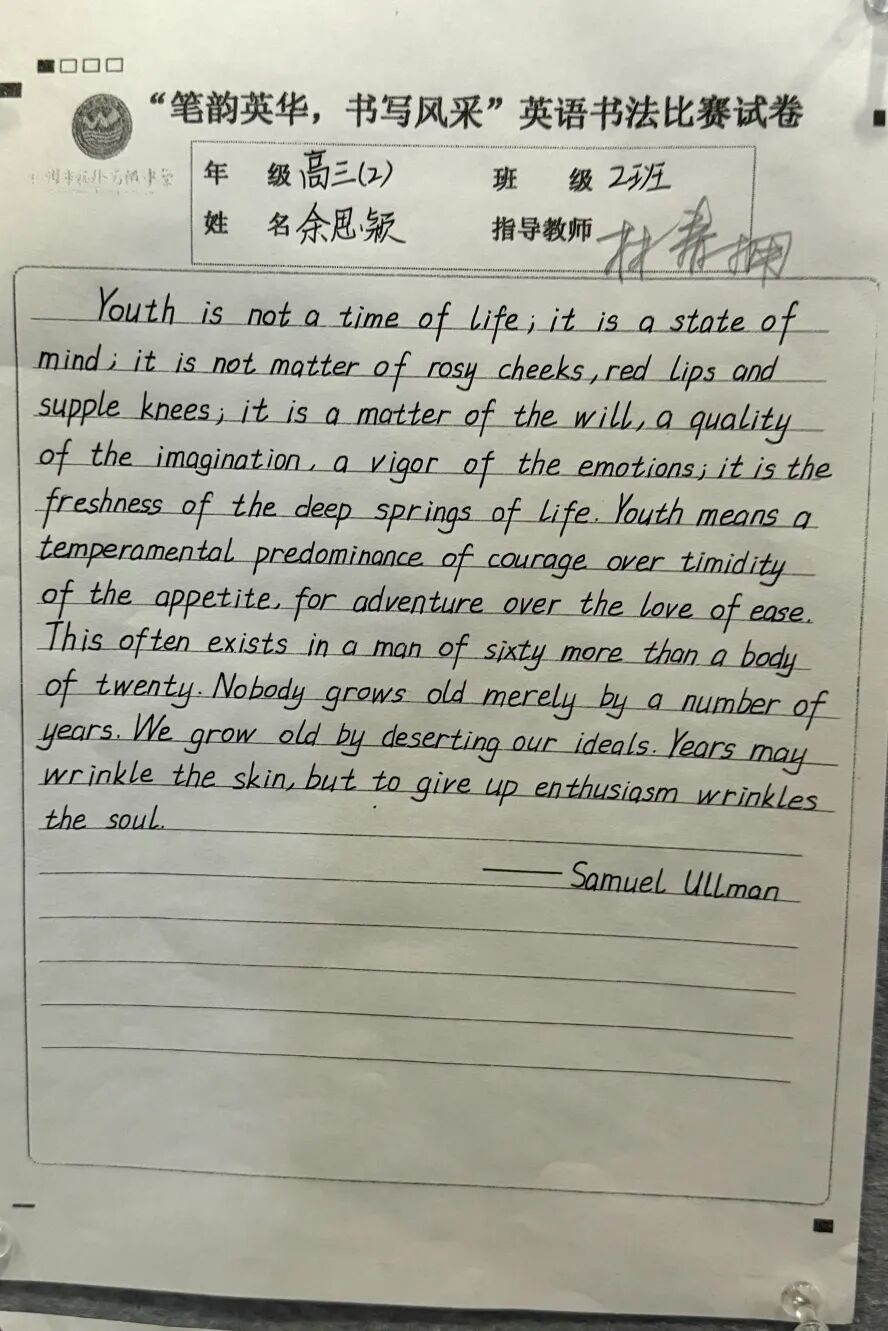 “笔韵英华，书写风采”英语书法比赛试卷
年 级 高三(2) 班 级 2班
姓 名 余思颖 指导教师 林春
Youth is not a time of life; it is a state of
mind; it is not matter of rosy cheeks, red lips and
supple knees; it is a matter of the will, a quality
of the imagination, a vigor of the emotions; it is the
freshness of the deep springs of life. Youth means a
temperamental predominance of courage over timidity
of the appetite, for adventure over the love of ease.
This often exists in a man of sixty more than a body
of twenty. Nobody grows old merely by a number of
years. We grow old by deserting our ideals. Years may
wrinkle the skin, but to give up enthusiasm wrinkles
the soul.
—— Samuel Ullman